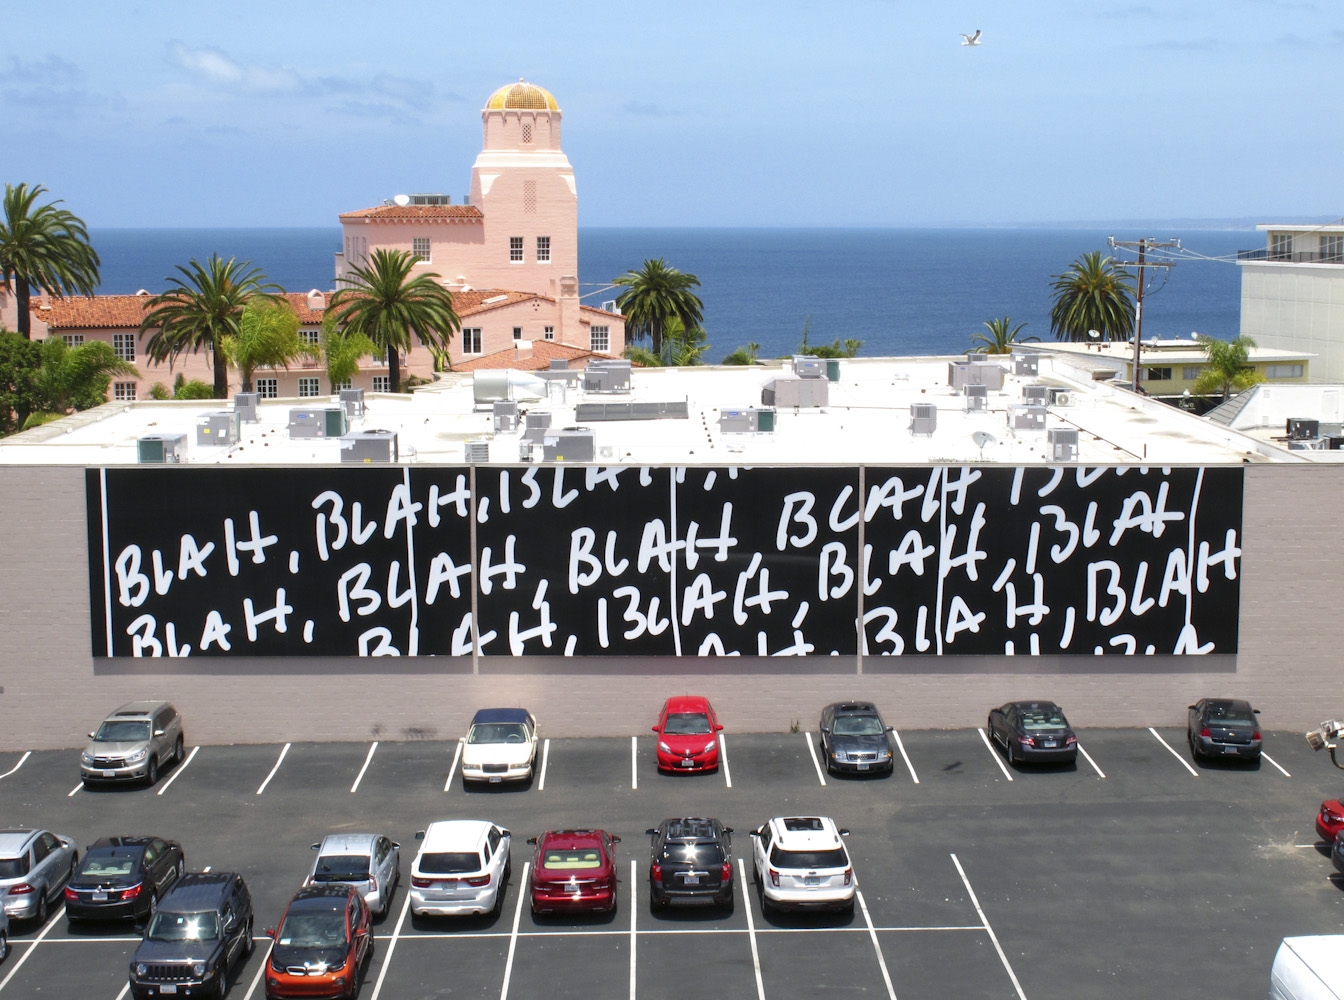 BLAH, BLAH, BLAH,
BLAH, BLAH, BLAH, BLAH, BLAH
BLAH, BLAH, BLAH, BLAH, BLAH
BLAH, BLAH